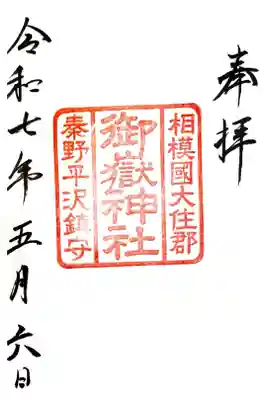 奉拝
相模國大住郡
御嶽神社
秦野平沢鎮守
令和七年五月六日